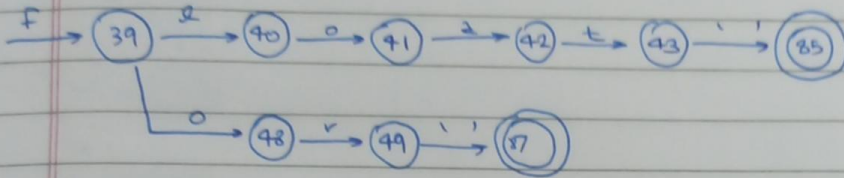 f 39 l 40 o 41 a 42 t 43 ' ' 85
o 48 r 49 ' ' 87